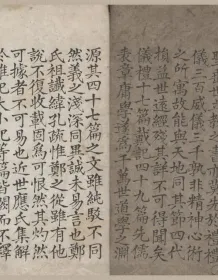 儀三百威儀三千孰非精神心術
之所寓故能與天地同其節四代
損益世遠經殘其詳不可得聞矣
儀禮十七篇戴記四十九篇先儒
表章庸學遂為千萬世道學之淵
源其四十七篇之文雖純駁不同
然義之淺深同異誠未易言也鄭
氏祖讖緯孔疏惟鄭之從雖有他
說不復收載固為可恨然其灼然
可據者不可易也近世應氏集解
於雜記大小記等篇皆闕而不釋